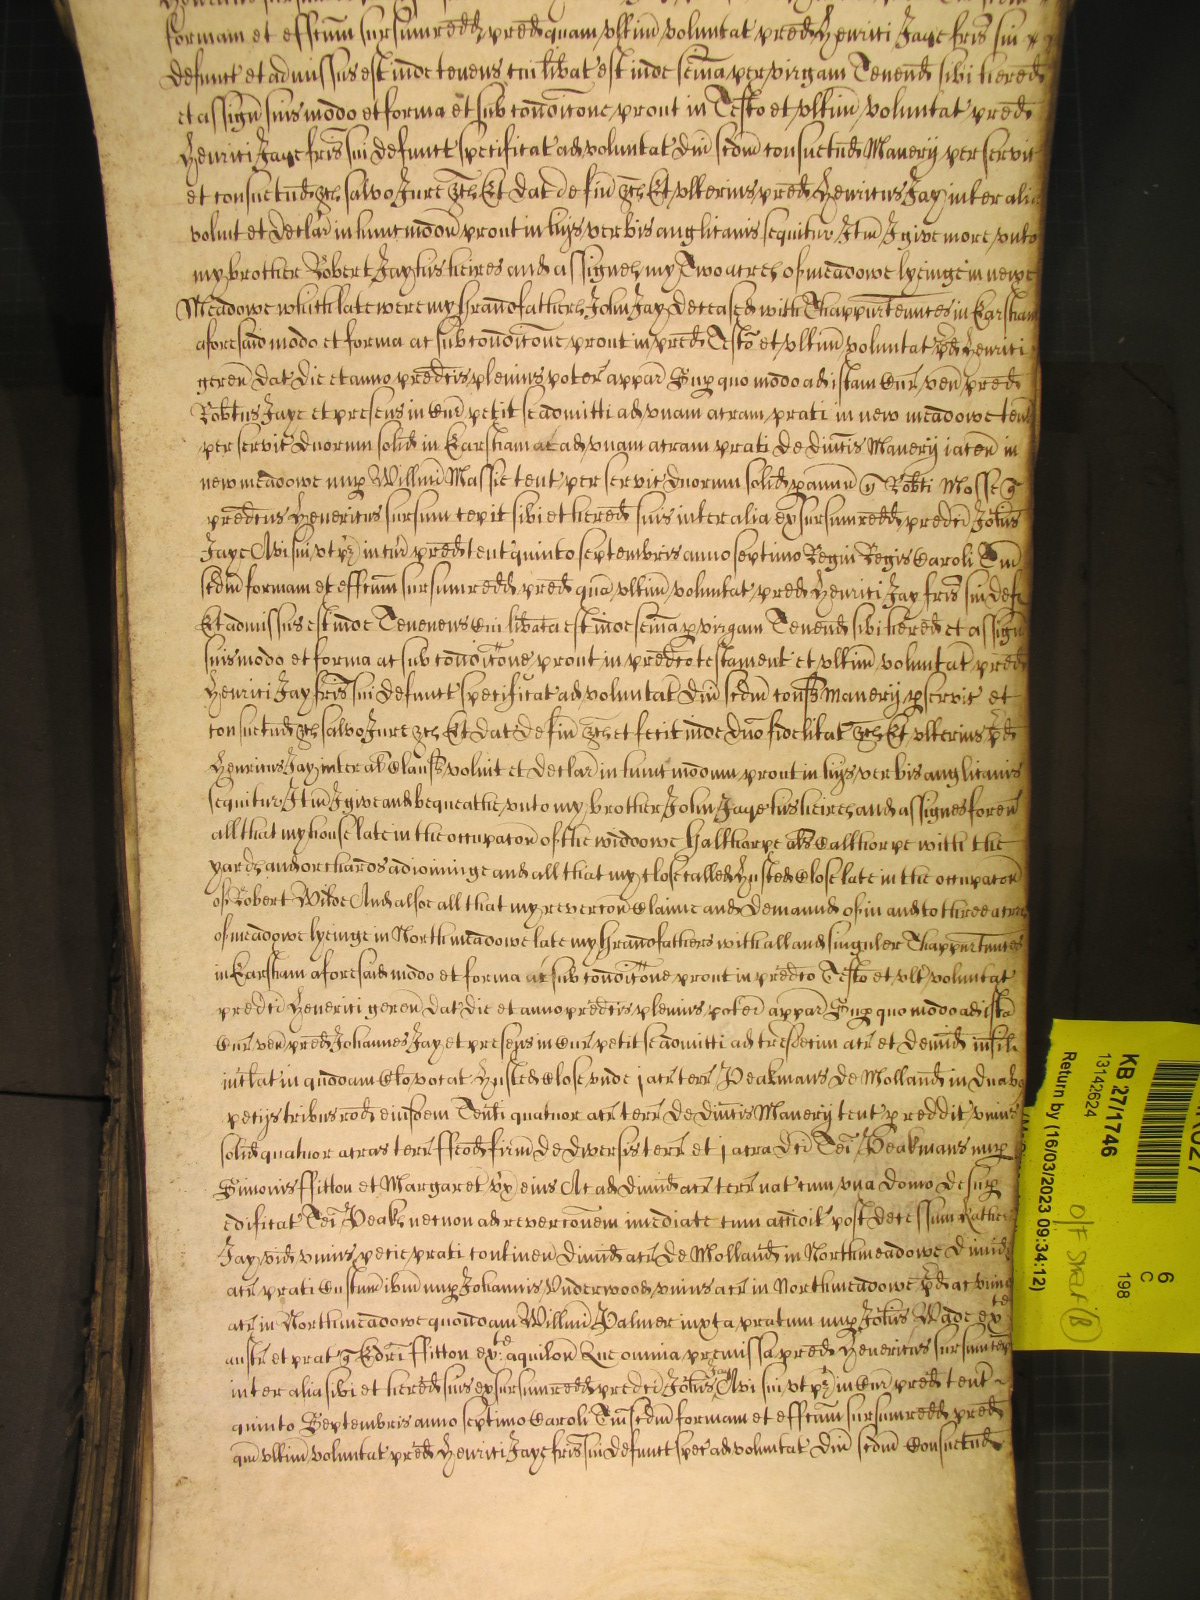 formam et effcum sursumredd pred quam ultim voluntat pred Henrici Jaye fris sui
defunct et admissus est inde tenens cui libat est inde seina per virgam Tenend sibi hered
et assign suis modo et forma et sub condicone prout in Testo et ultim voluntat pred
Henrici Jaye fris sui defunct specificat ad voluntat dni scdm consuetud Manerij per servic
et consuetud &ch salvo Jure &ch Et dat de fin &ch Et ulterius pred Henricus Jay inter alia
voluit et declar in hunc modum prout in hijs verbis anglicanis sequitur Itm I give more unto
my brother Robert Jay his heires and assignes my Two acres of meadowe lyeinge in newe
Meadowe which late were my Grandfathers John Jay deceased with Thappurtennces in Earsham
aforesaid modo et forma ac sub condicone prout in pred Testo et ultim voluntat pd Henrici
geren dat die et anno predcis plenius poter appar Sup quo modo ad istam Cur ven pred
Robtus Jaye et presens in Cur petit se admitti ad unam acram prati in new meadowe tent
per servic duorum solid in Earsham ac ad unam acram prati de dimis Manerij iacen in
new meadowe nup Willmi Massie tent per servic duorum solid p annu q Robti Masse q
predcus Henricus sursum cepit sibi et hered suis inter alia ex sursumredd predci Johis
Jaye Avi sui ut pz in cur pred tent quinto Septembris anno septimo Regni Regis Caroli Tm
scdm formam et effcum sursumredd pred qua ultim voluntat pred Henrici Jay fris sui def
Et admissus est inde Tenenens Cui libata est inde seina p virgam Tenend sibi hered et assign
suis modo et forma ac sub condicone prout in predco testament et ultim voluntat pred
Henrici Jay fris sui defunct specificat ad voluntat dni scdm cons Manerij p servic et
consuetud &ch salvo Jure &ch Et dat de fin &ch et fecit inde dno fidelitat &ch Et ulterius pd
Henricus Jay inter al Claus voluit et declar in hunc modum prout in hijs verbis anglicanis
sequitur Itm I give and bequeathe unto my brother John Jaye his heires and assignes forev
all that my house late in the occupacon of the widdowe Halthorpe als Calthorpe with the
yards and orchards adioininge and all that my close called Husted Close late in the occupacon
of Robert Wilde And alsoe all that my revercon Claime and demaund of in and to three acres
of meadowe lyeinge in North meadowe late my Grandfathers with all and singuler Thappurtennces
in Earsham aforesaid modo et forma ac sub condicone prout in predco Testo et ult voluntat
predci Henerici geren dat die et anno predcis plenius poter appar Sup quo modo ad ista
Cur ven pred Johannes Jay et presens in Cur petit se admitti ad tresdecim acr et dimid
in quodam Clo vocat Husted Close unde j acr terr Peakmans de Molland in duabus
petijs tribus rod eiusdem Tenti quatuor acr terr de dimis Manerij tent p reddit unius
solid quatuor acras terr ffeod firm de diversis terr et j acra dci Tei Peakmans nup
Simonis ffitton et Margaret ux eius Ac ad dimid acr terr nat cum una domo desup
edificat Tei Peaks necnon ad revercionem imediate cum acciderit post decessum Katherine
Jay vid unius petie prati continen dimid acr de Molland in Northmeadowe dimid
acr prati Custum ibm nup Johannis Underwood unius acr in Northmeadowe pd ac unius
acr in Northmeadowe quondam Willmi Palmer iuxta pratum nup Johis Wade ex pte
austr et prat q Edri ffitton ex pte aquilon Que omnia premissa pred Henericus sursum cep
inter alia sibi et hered suis ex sursumredd predci Johis Jay Avi sui ut pz in Cur pred tent
quinto Septembris anno septimo Caroli Tm scdm formam et effcum sursumredd pred
qm ultim voluntat pred Henrici Jaye fris sui defunct spec ad voluntat dni scdm Consuetud
KB 27/1746
13142624
Return by (16/03/2023 09:34:12)
6
C
198
O/F Shelf 18